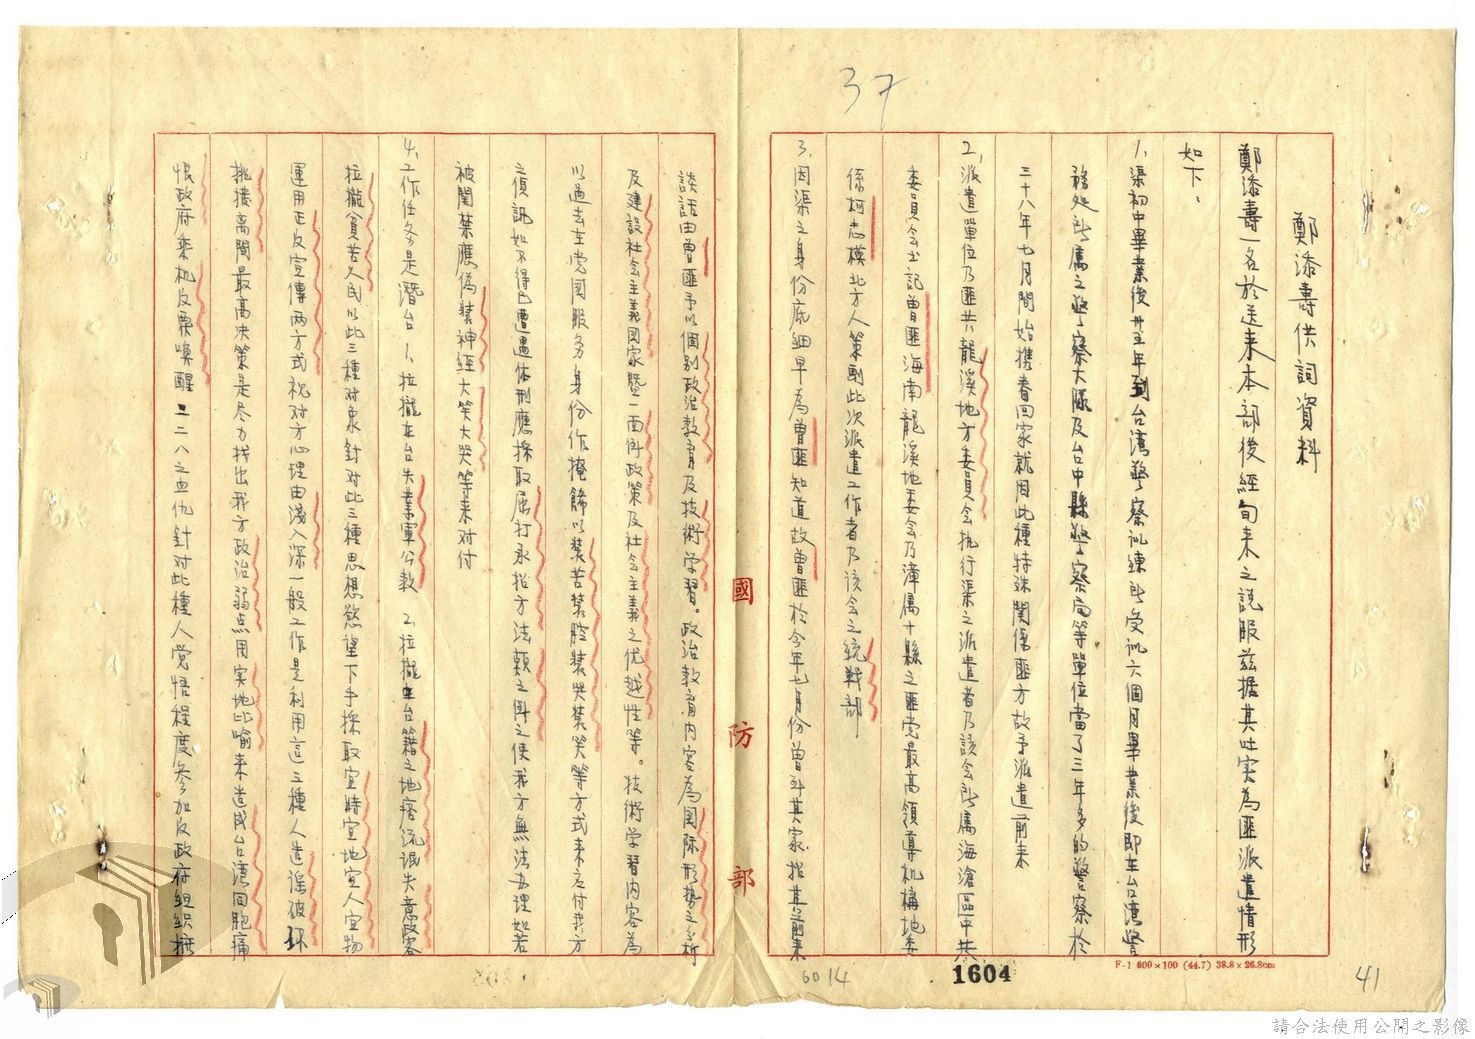 37
鄭添壽供詞資料
鄭添壽一名於送來本部後經旬來之說服茲據其吐實為匪派遣情形
如下：
1、渠初中畢業後卅五年到台灣警察訓練所受訓六個月畢業後即在台灣警
務处所屬之警察大隊及台中縣警察局等單位當了三年多的警察於
三十八年七月間始携眷回家就因此種特殊関係匪方故予派遣前来
2、派遣單位乃匪共龍溪地方委員会执行渠之派遣者乃該会所屬海滄區中共
委員会书記曾匪海南龍溪地委会乃漳属十縣之匪党最高領導机構地委
係柯志模北方人策劃此次派遣工作者乃该会之統戰部
3、因渠之身份底細早為曾匪知道故曾匪於今年七月份曾到其家招其前来
國防部
談話由曽匪予以個別政治教育及技術学習。政治教育内容為国际形势之分析
及建設社会主義国家暨一面倒政策及社会主義之优越性等。技術学習内容為
以過去在党国服务身份作掩飾以装苦装腔装哭装笑等方式来应付我方
之侦訊如不得已遭遇体刑應採取屈打承招方法赖之倒之使我方無法办理如若
被関禁應偽装神經大笑大哭等来对付
4、工作任务是潛台 1、拉攏在台失業軍公教 2、拉攏在台籍之地痞流氓失意政客
拉攏貧苦人民以此三種对象針对此三種思想慾望下手採取宜時宜地宜人宜物
運用正反宣傳两方式視对方心理由淺入深一般工作是利用這三種人造謠破坏
挑撥离間最高决策是尽力找出我方政治弱点用实地比喻来造成台湾同胞痛
恨政府乘机反票喚醒二二八之血仇針对此種人觉悟程度參加反政府组织擴
F-1 600×100 (44.7) 38.8×26.8cm
60 14
1604
41
請合法使用公開之影像